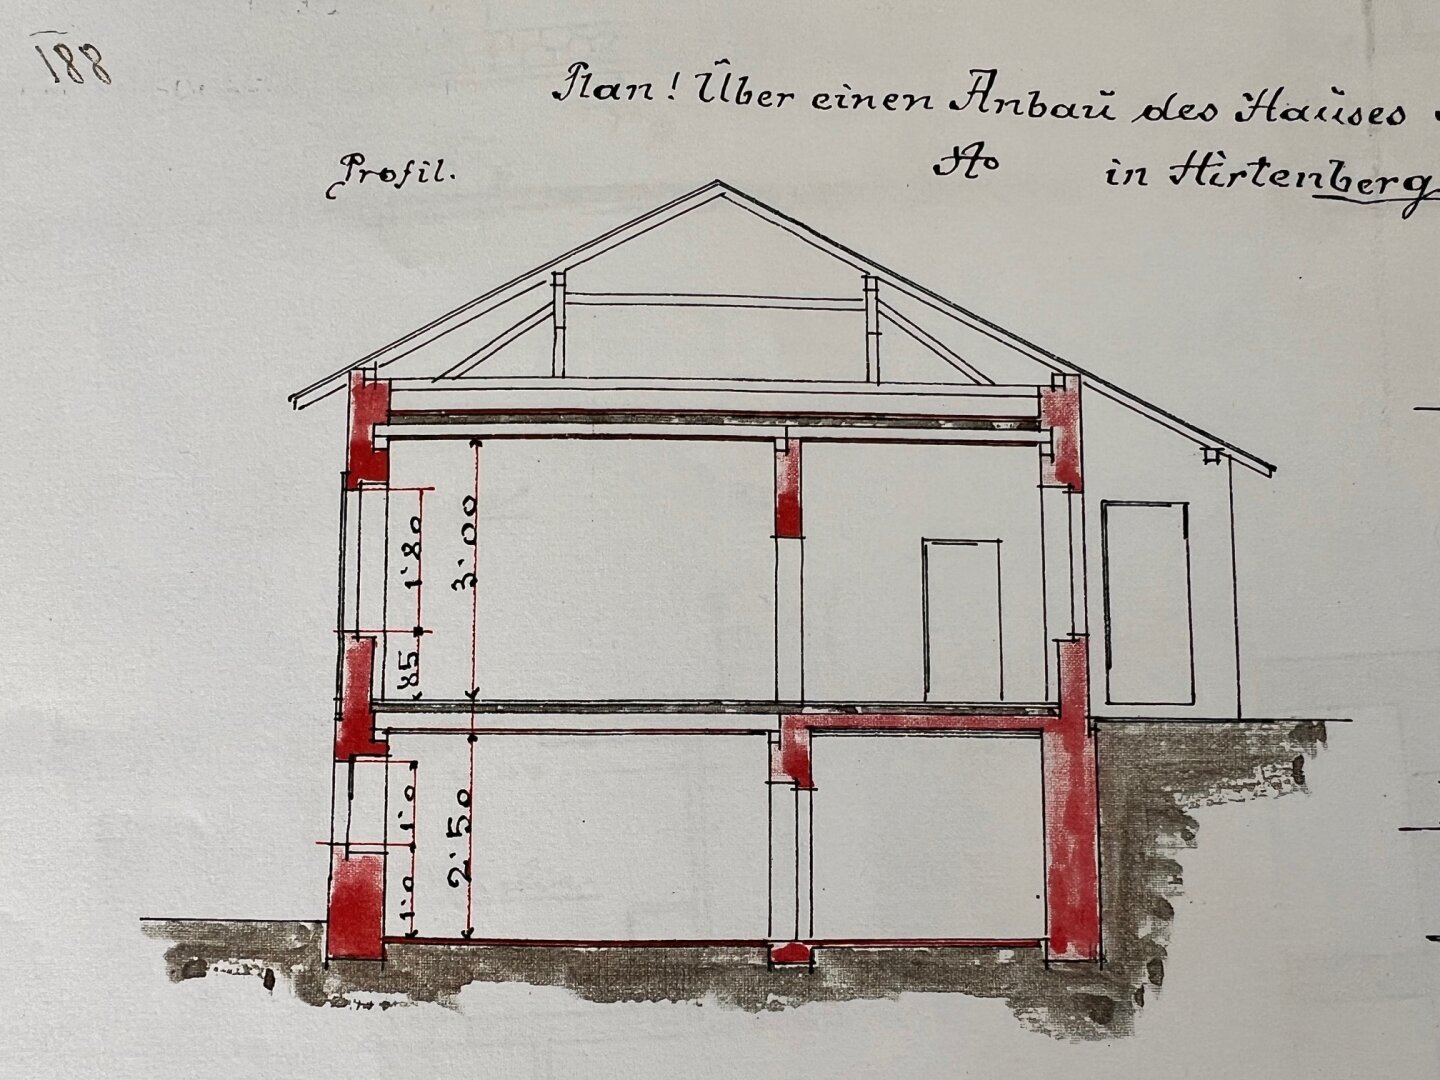 188
Plan! Über einen Anbau des Hauses
No in Hirtenberg
Profil.
3·00
1·80
·85
2·50
1·0
1·0